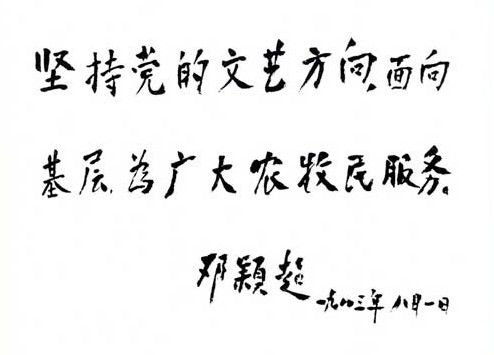 坚持党的文艺方向，面向
基层，为广大农牧民服务。
邓颖超 一九八三年八月一日